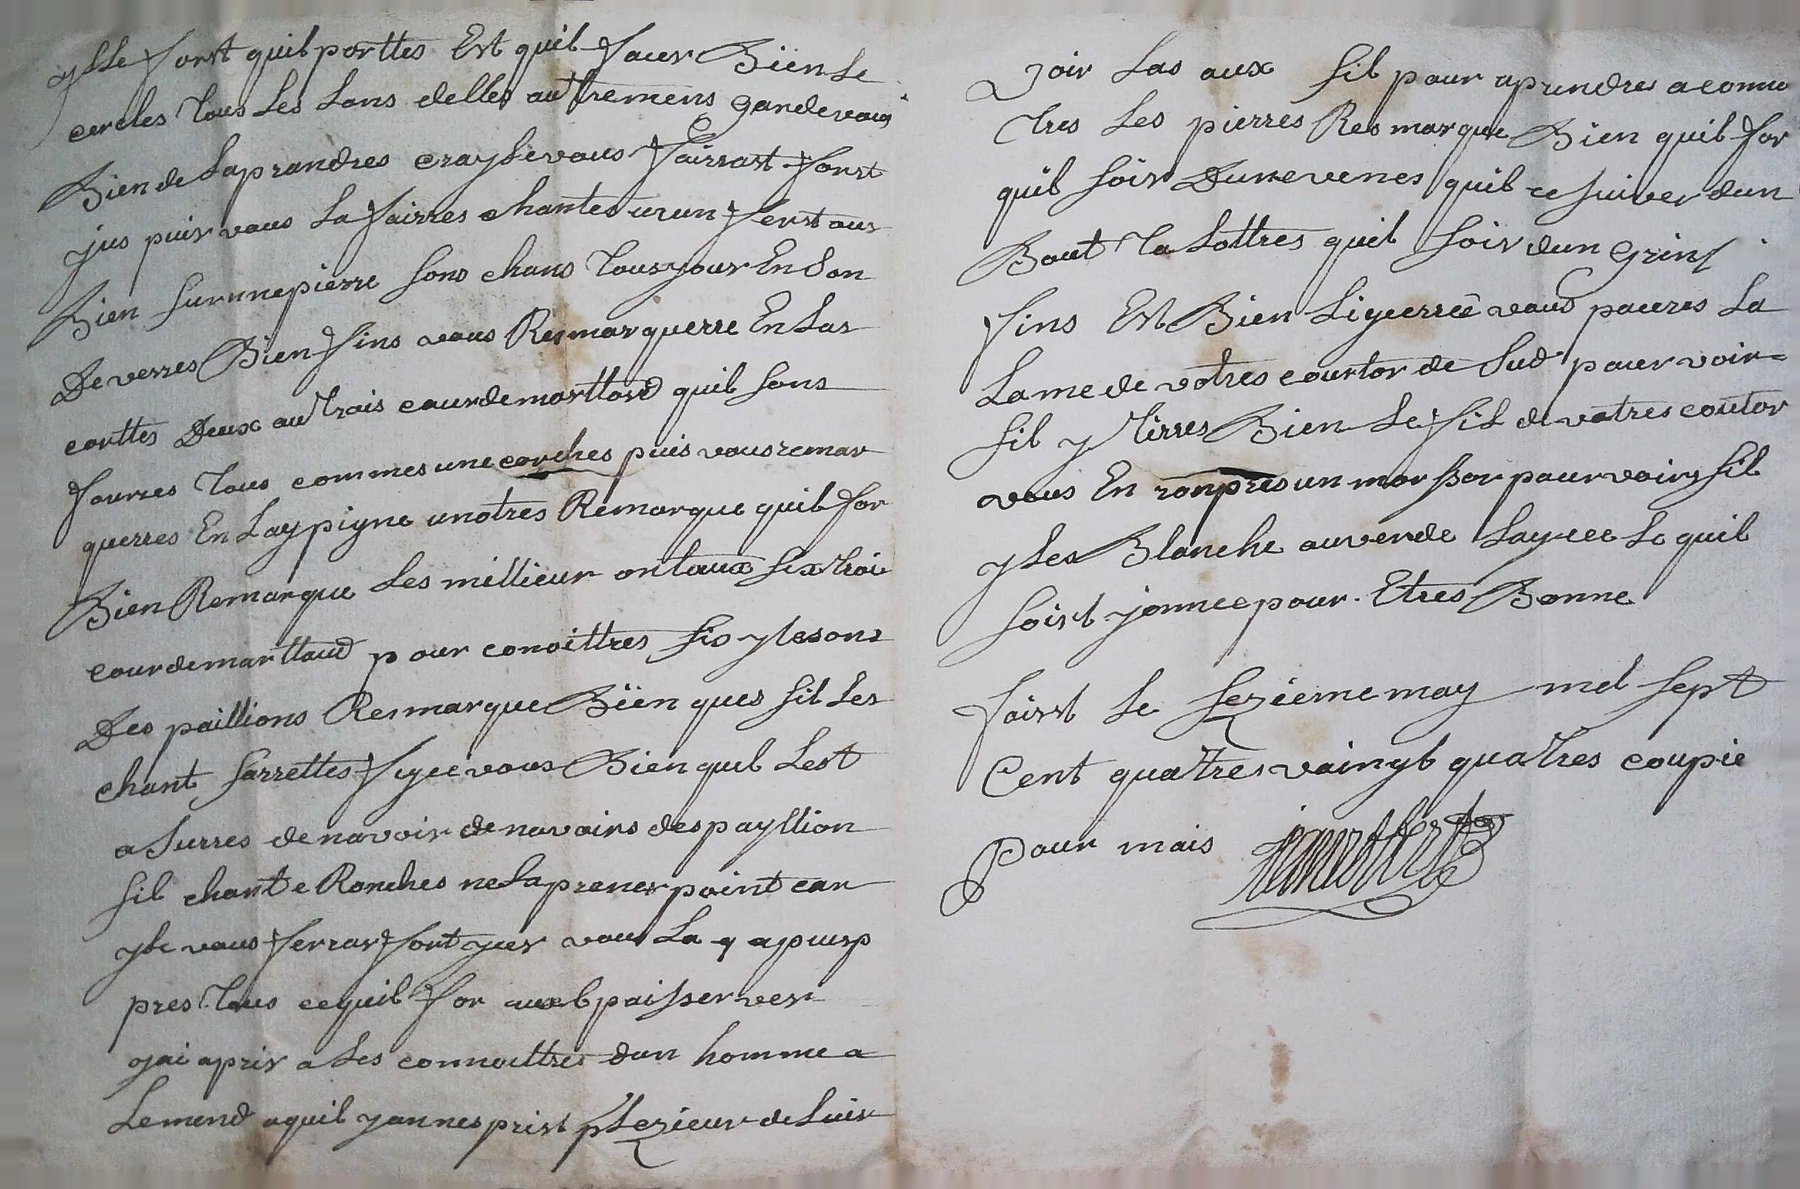 ylle font quil porttes Est quil faur Bien Le
cercles Tous Les Lans delles autremens gardevous
Bien de Laprandres craylevous fairrast font
jus puis vous La fairres chantes urun fert ous
Bien surunnepierre sons chans Tousjour En Son
De verres Bien fins vous Remarquerre En Las
corttes Deux au Trois courdemorttord quil sons
fourres Tous commes une corches puis vous remar
querres En Laypigne unotres Remarque quil for
Bien Remarque Les millieur ontaux six Troi
courdemarttaud pour conoittres sis ylesons
Des paillions Remarque Bien ques sil Les
chant sarrettes fiyee vous Bien quil Lest
a surres denavoir denavoirs despayllion
sil chante Ronches ne Laprener point car
yle vous ferrar font jus vous La y apuisp
pres Tous cequil for
jai apris a Les connoittres dun homme a
Lemend aquil yannes prist plezieur de Luir
Voir Las aux sil pour aprendres a conno
Tres Les pierres Remarque Bien quil for
quil soir Dunevenes quil ce suiver dun
Bout Ta Lottres quil soir dun Grins
fins Est Bien Liguerree vous paures La
Lame de votres courtor de Sud pour voir
sil y Tirres Bien Le fil de votres coutor
vous En ronpres un morsor pour voirs sil
yles Blanche auverde Lay ree Le quil
soist jonnee pour Etres Bonne
faist Le sezieme may mil sept
Cent quatres vaingt quatres coupie
Pour mais